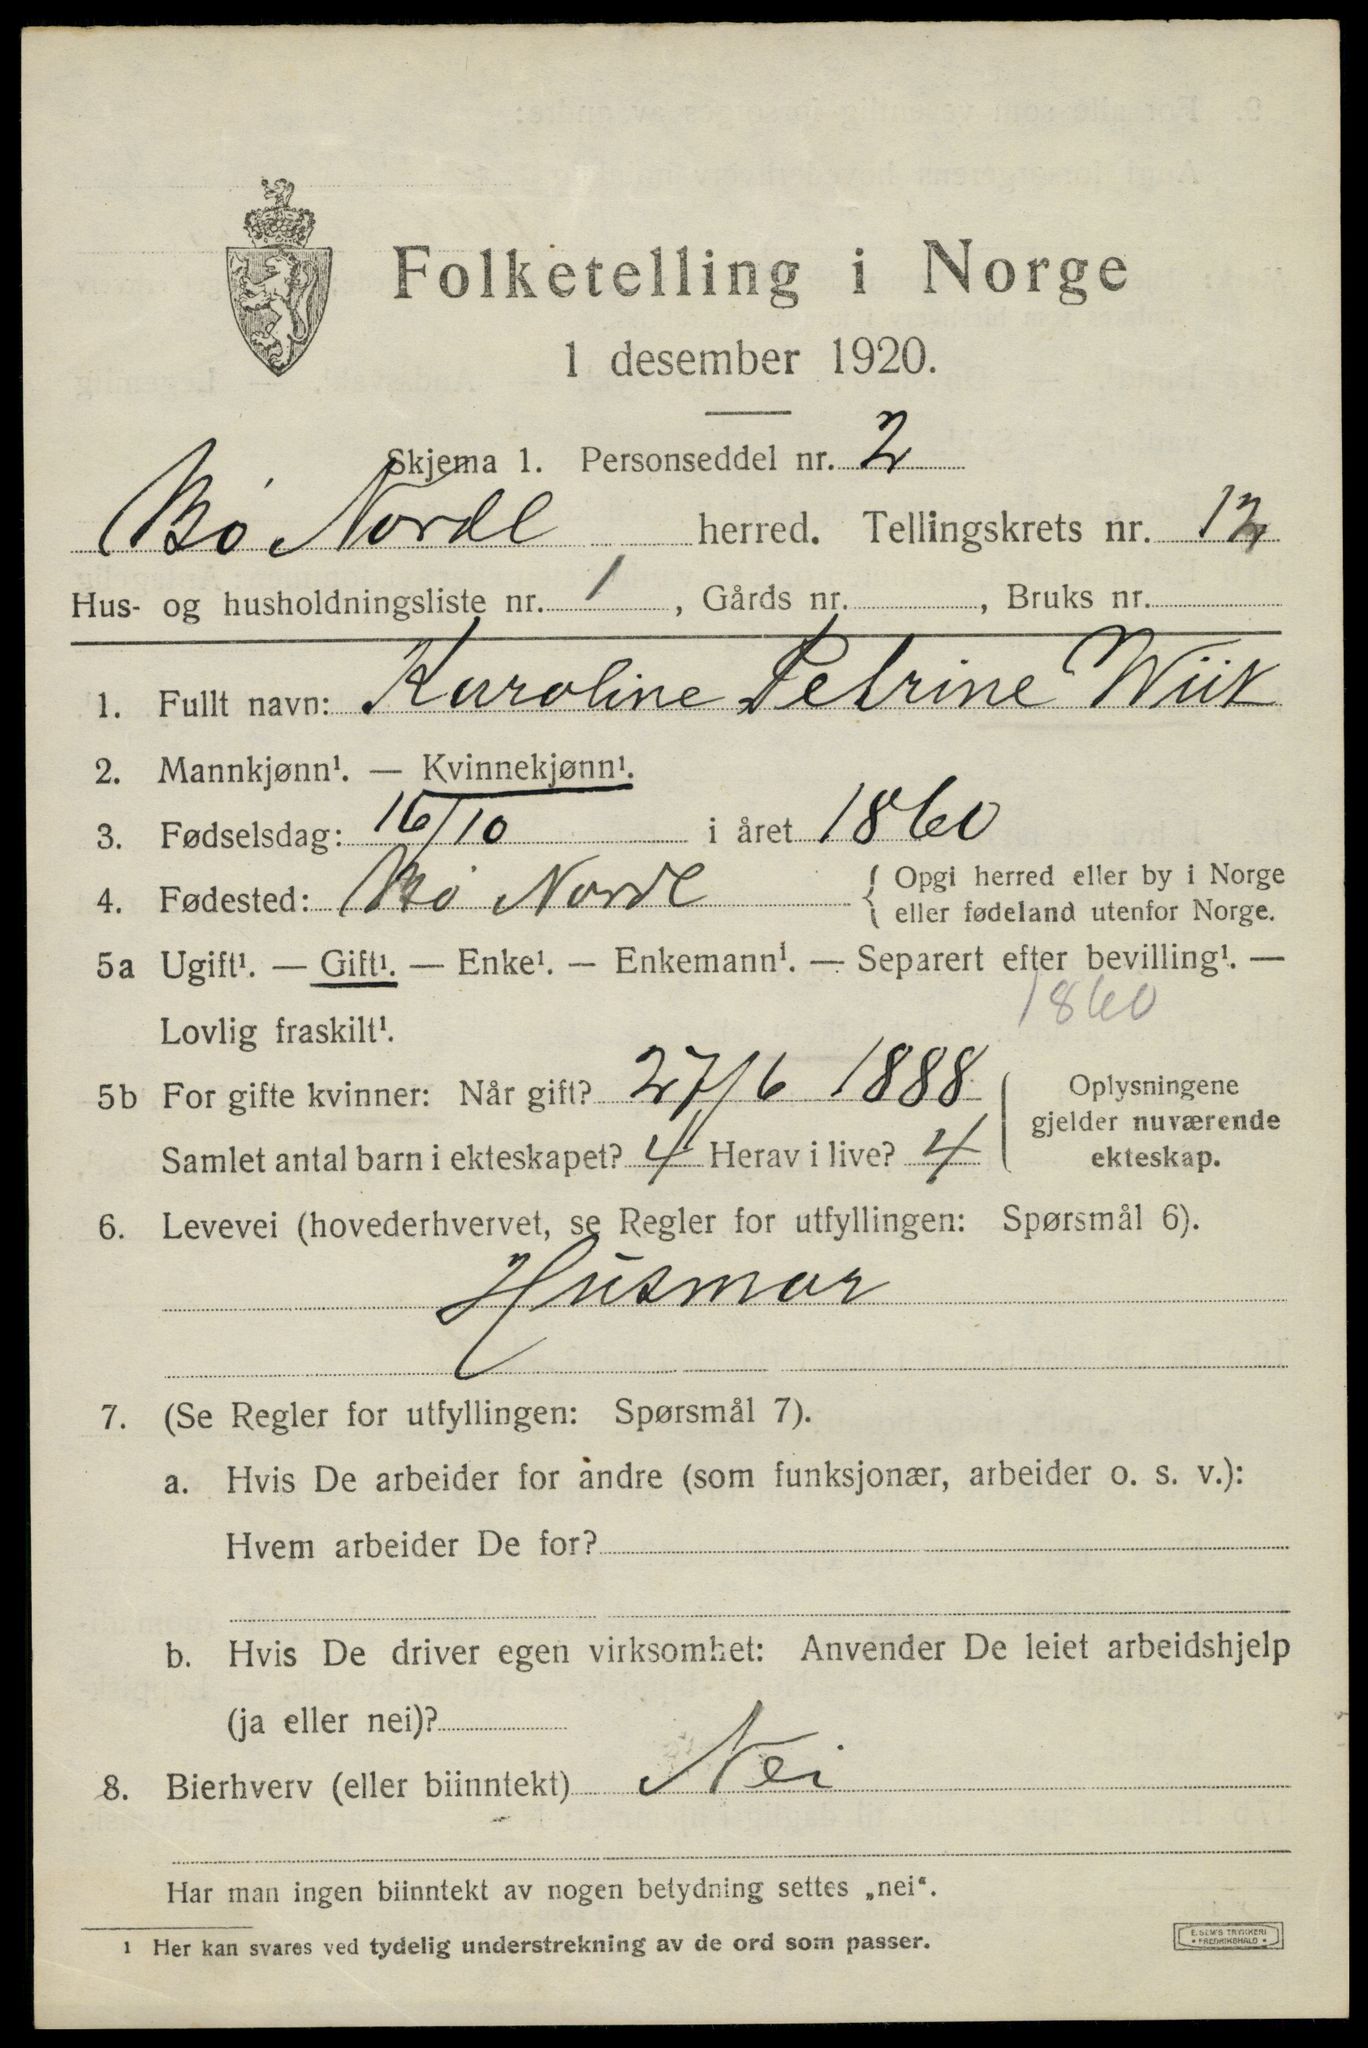 Folketelling i Norge
1 desember 1920.
Skjema 1. Personseddel nr. 2
Bø Nordl herred. Tellingskrets nr. 12
Hus- og husholdningsliste nr. 1, Gårds nr. , Bruks nr.
1. Fullt navn: Karoline Petrine Wiik
2. Mannkjønn¹. — Kvinnekjønn¹.
3. Fødselsdag: 16/10 i året 1860
4. Fødested: Bø Nordl { Opgi herred eller by i Norge
eller fødeland utenfor Norge.
5a Ugift¹. — Gift¹. — Enke¹. — Enkemann¹. — Separert efter bevilling¹. —
1860
Lovlig fraskilt¹.
5b For gifte kvinner: Når gift? 27/6 1888
Samlet antal barn i ekteskapet? 4 Herav i live? 4
Oplysningene
gjelder nuværende
ekteskap.
6. Levevei (hovederhvervet, se Regler for utfyllingen: Spørsmål 6).
Husmor
7. (Se Regler for utfyllingen: Spørsmål 7).
a. Hvis De arbeider for andre (som funksjonær, arbeider o. s. v.):
Hvem arbeider De for?
b. Hvis De driver egen virksomhet: Anvender De leiet arbeidshjelp
(ja eller nei)?
8. Bierhverv (eller biinntekt) Nei
Har man ingen biinntekt av nogen betydning settes „nei“.
¹ Her kan svares ved tydelig understrekning av de ord som passer.
E. SEM'S TRYKKERI
* FREDRIKSHALD *